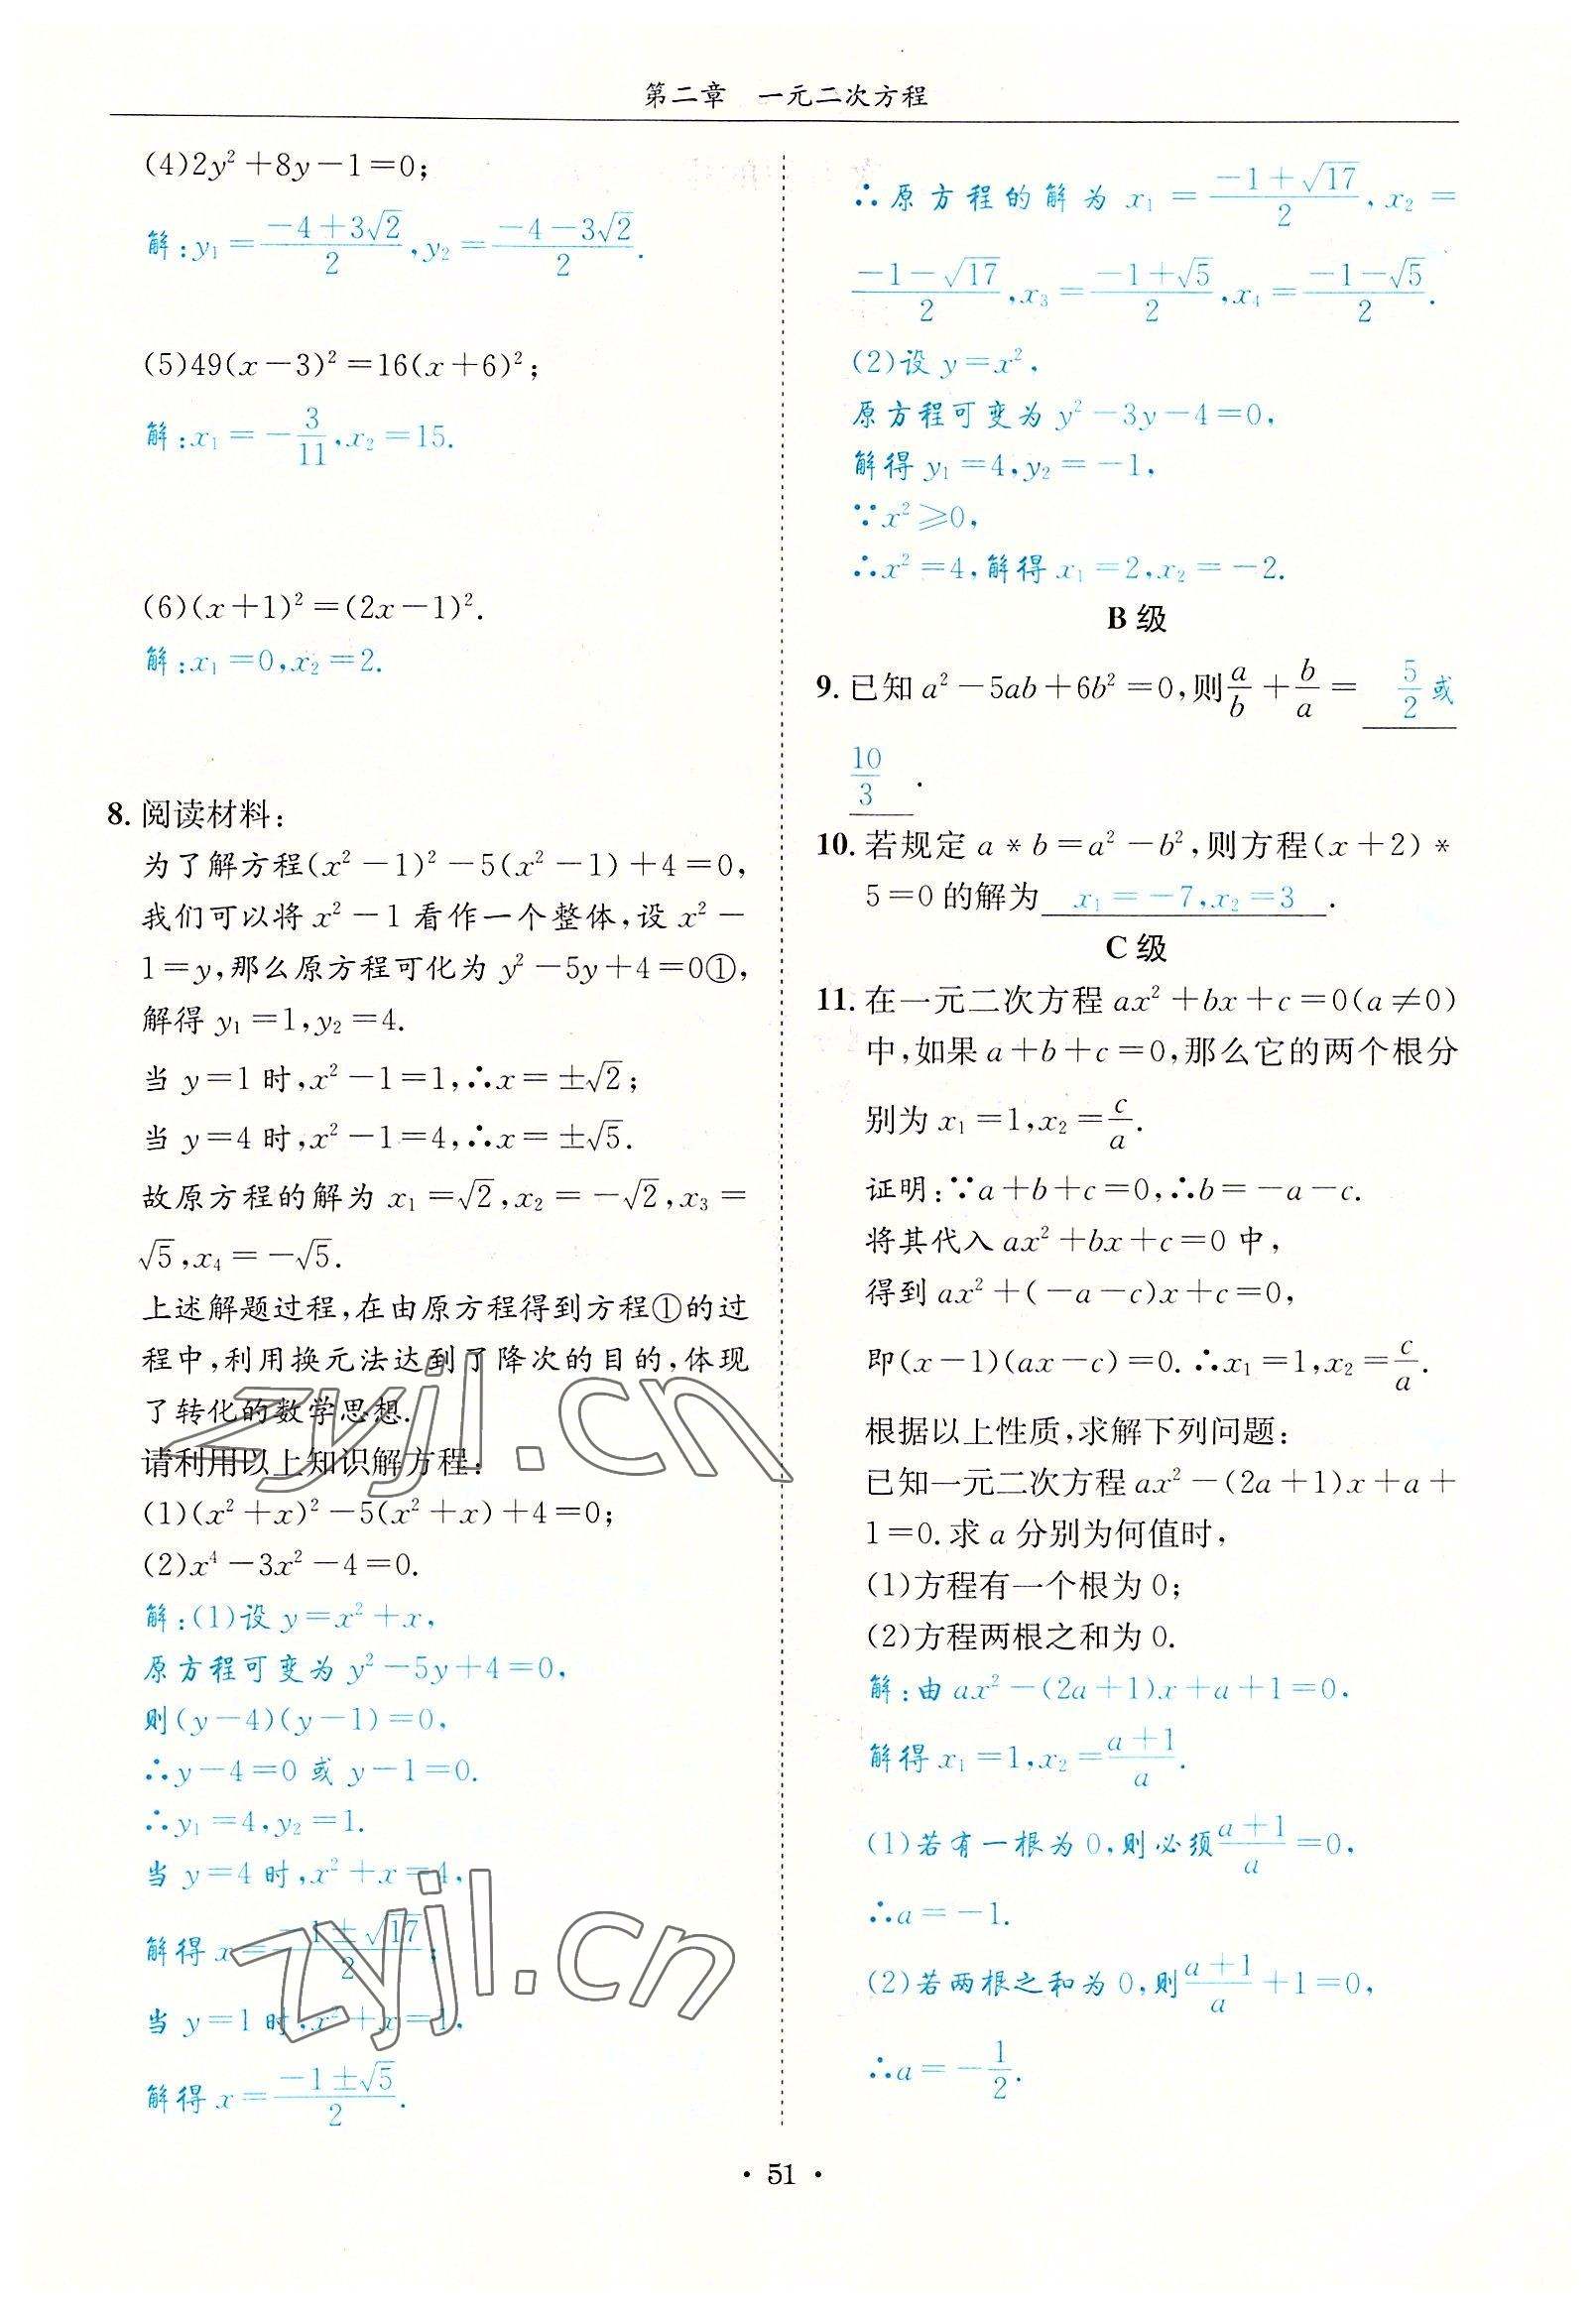 第二章 一元二次方程
(4)2y²+8y-1=0;
解:y₁=(-4+3√2)/2,y₂=(-4-3√2)/2.
(5)49(x-3)²=16(x+6)²;
解:x₁=-3/11,x₂=15.
(6)(x+1)²=(2x-1)².
解:x₁=0,x₂=2.
8. 阅读材料:
为了解方程(x²-1)²-5(x²-1)+4=0,
我们可以将 x²-1 看作一个整体,设 x²-
1=y,那么原方程可化为 y²-5y+4=0①,
解得 y₁=1,y₂=4.
当 y=1 时,x²-1=1,∴x=±√2;
当 y=4 时,x²-1=4,∴x=±√5.
故原方程的解为 x₁=√2,x₂=-√2,x₃=
√5,x₄=-√5.
上述解题过程,在由原方程得到方程①的过
程中,利用换元法达到了降次的目的,体现
了转化的数学思想.
请利用以上知识解方程:
(1)(x²+x)²-5(x²+x)+4=0;
(2)x⁴-3x²-4=0.
解:(1)设 y=x²+x,
原方程可变为 y²-5y+4=0,
则(y-4)(y-1)=0,
∴y-4=0 或 y-1=0.
∴y₁=4,y₂=1.
当 y=4 时,x²+x=4,
解得 x=(-1±√17)/2;
当 y=1 时,x²+x=1,
解得 x=(-1±√5)/2.
∴原方程的解为 x₁=(-1+√17)/2,x₂=
(-1-√17)/2,x₃=(-1+√5)/2,x₄=(-1-√5)/2.
(2)设 y=x²,
原方程可变为 y²-3y-4=0,
解得 y₁=4,y₂=-1,
∵x²≥0,
∴x²=4,解得 x₁=2,x₂=-2.
B 级
9. 已知 a²-5ab+6b²=0,则a/b+b/a= 5/2或
10/3 .
10. 若规定 a*b=a²-b²,则方程(x+2)*
5=0 的解为 x₁=-7,x₂=3 .
C 级
11. 在一元二次方程 ax²+bx+c=0(a≠0)
中,如果 a+b+c=0,那么它的两个根分
别为 x₁=1,x₂=c/a.
证明:∵a+b+c=0,∴b=-a-c.
将其代入 ax²+bx+c=0 中,
得到 ax²+(-a-c)x+c=0,
即(x-1)(ax-c)=0.∴x₁=1,x₂=c/a.
根据以上性质,求解下列问题:
已知一元二次方程 ax²-(2a+1)x+a+
1=0.求 a 分别为何值时,
(1)方程有一个根为 0;
(2)方程两根之和为 0.
解:由 ax²-(2a+1)x+a+1=0,
解得 x₁=1,x₂=(a+1)/a.
(1)若有一根为 0,则必须(a+1)/a=0,
∴a=-1.
(2)若两根之和为 0,则(a+1)/a+1=0,
∴a=-1/2.
· 51 ·
zyjl.cn
zyjl.cn